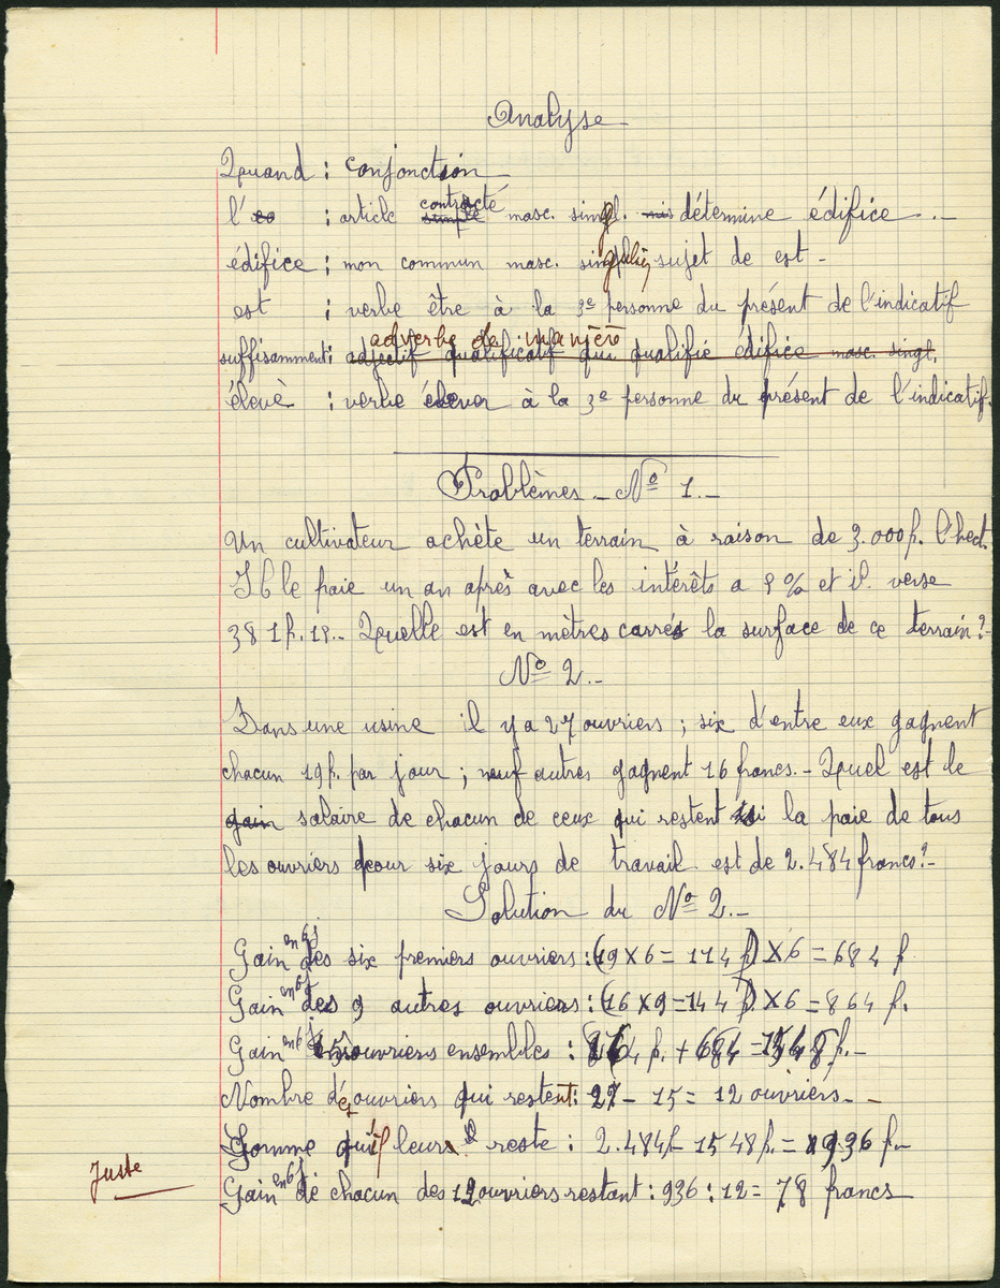 Analyse
Quand : conjonction
l' : article contracté simple masc. singl. mis détermine édifice
édifice : mon commun masc. singulier sujet de est -
est : verbe être à la 3e personne du présent de l'indicatif
adverbe de manière
suffisamment : adjectif qualificatif qui qualifie édifice masc. singl.
élevè : verbe élever à la 3e personne du présent de l'indicatif.
Problèmes - No 1.-
Un cultivateur achète un terrain à raison de 3.000f. l'hect.
Il le paie un an après avec les intérêts a 9 % et il verse
381f.19.- Quelle est en mètres carrés la surface de ce terrain?-
No 2.-
Dans une usine il y a 27 ouvriers ; six d'entre eux gagnent
chacun 19f. par jour ; neuf autres gagnent 16 francs.- Quel est le
gain salaire de chacun de ceux qui restent si la paie de tous
les ouvriers pour six jours de travail est de 2.484 francs?-
Solution du No 2.-
Gain en 6j des six premiers ouvriers : (19 X 6 = 114 f) X 6 = 684 f
Gain en 6j des 9 autres ouvriers : (16 X 9 = 144 f) X 6 = 864 f.
Gain en 6j ouvriers ensembles : 864 f. + 684 = 1548 f.-
Nombre d'ouvriers qui restent : 27 - 15 = 12 ouvriers.-
Somme qu'il leurs reste : 2.484f - 1548f. = 936 f.-
Juste
Gain en 6j de chacun des 12 ouvriers restant : 936 : 12 = 78 francs